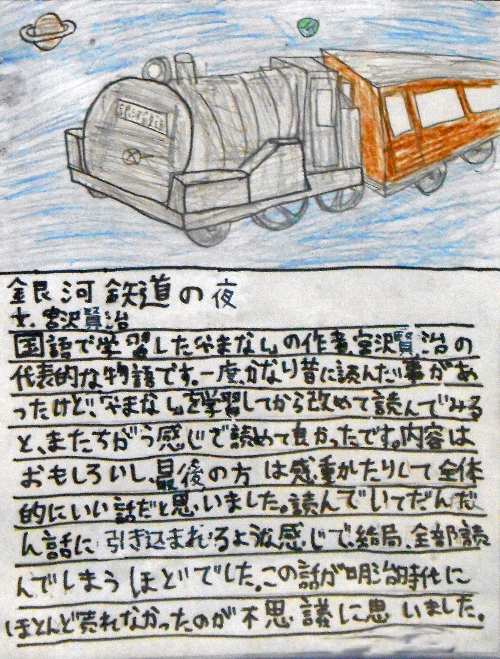 銀河鉄道の夜
文.宮沢賢治
国語で学習した「やまなし」の作者、宮沢賢治の
代表的な物語です。一度、かなり昔に読んだ事があ
ったけど、「やまなし」を学習してから改めて読んでみる
と、またちがう感じで読めて良かったです。内容は
おもしろいし、最後の方は感動したりして全体
的にいい話だと思いました。読んでいてだんだ
ん話に引き込まれるような感じで、結局、全部読
んでしまうほどでした。この話が明治時代に
ほとんど売れなかったのが不思議に思いました。